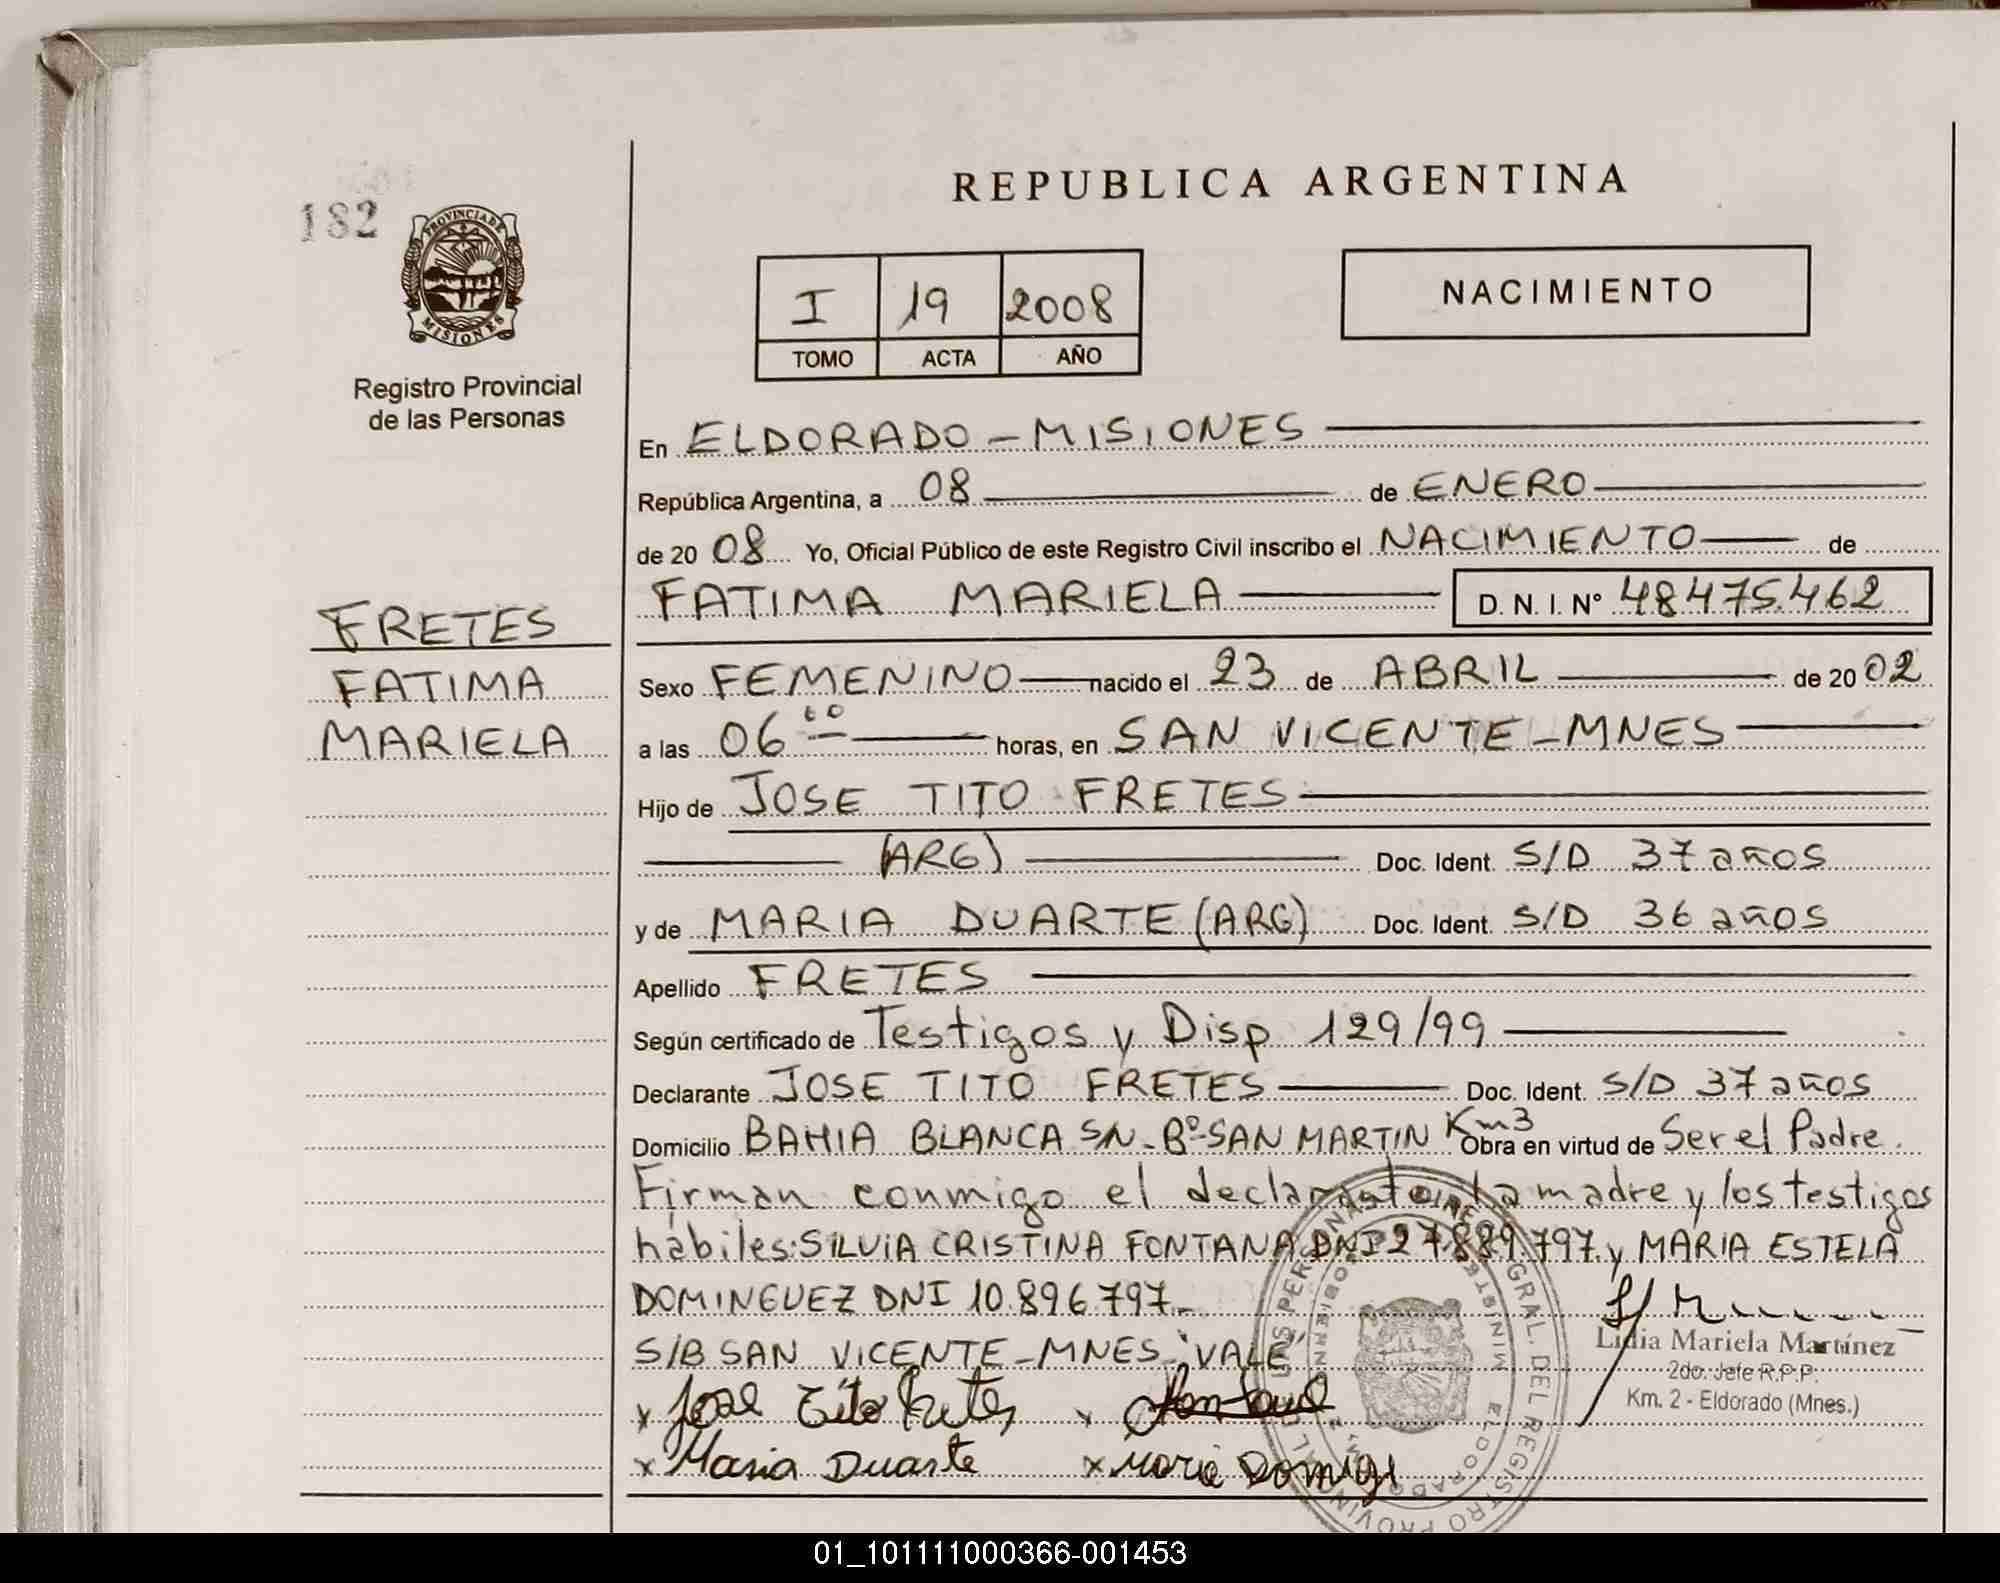 182
PROVINCIA DE
MISIONES
Registro Provincial
de las Personas
REPUBLICA ARGENTINA
I 19 2008
TOMO ACTA AÑO
NACIMIENTO
En ELDORADO - MISIONES
República Argentina, a 08 de ENERO
de 20 08 Yo, Oficial Público de este Registro Civil inscribo el NACIMIENTO de
FATIMA MARIELA D. N. I. Nº 48475.462
FRETES
FATIMA
MARIELA
Sexo FEMENINO nacido el 23 de ABRIL de 20 02
a las 06 horas, en SAN VICENTE - MNES
Hijo de JOSE TITO FRETES
(ARG) Doc. Ident. S/D 37 años
y de MARIA DUARTE (ARG) Doc. Ident. S/D 36 años
Apellido FRETES
Según certificado de Testigos y Disp 129/99
Declarante JOSE TITO FRETES Doc. Ident. S/D 37 años
Domicilio BAHIA BLANCA S/N - Bº SAN MARTIN Km 3 Obra en virtud de Ser el Padre.
Firman conmigo el declarante, la madre y los testigos
hábiles: SILVIA CRISTINA FONTANA DNI 27.889.797 y MARIA ESTELA
DOMINGUEZ DNI 10.896.797 -
S/B SAN VICENTE - MNES "VALE"
Lidia Mariela Martínez
2do. Jefe R.P.P.
Km. 2 - Eldorado (Mnes.)
x Jose Tito Fretes x Fontana
x Maria Duarte x Maria Doming
01_101111000366-001453